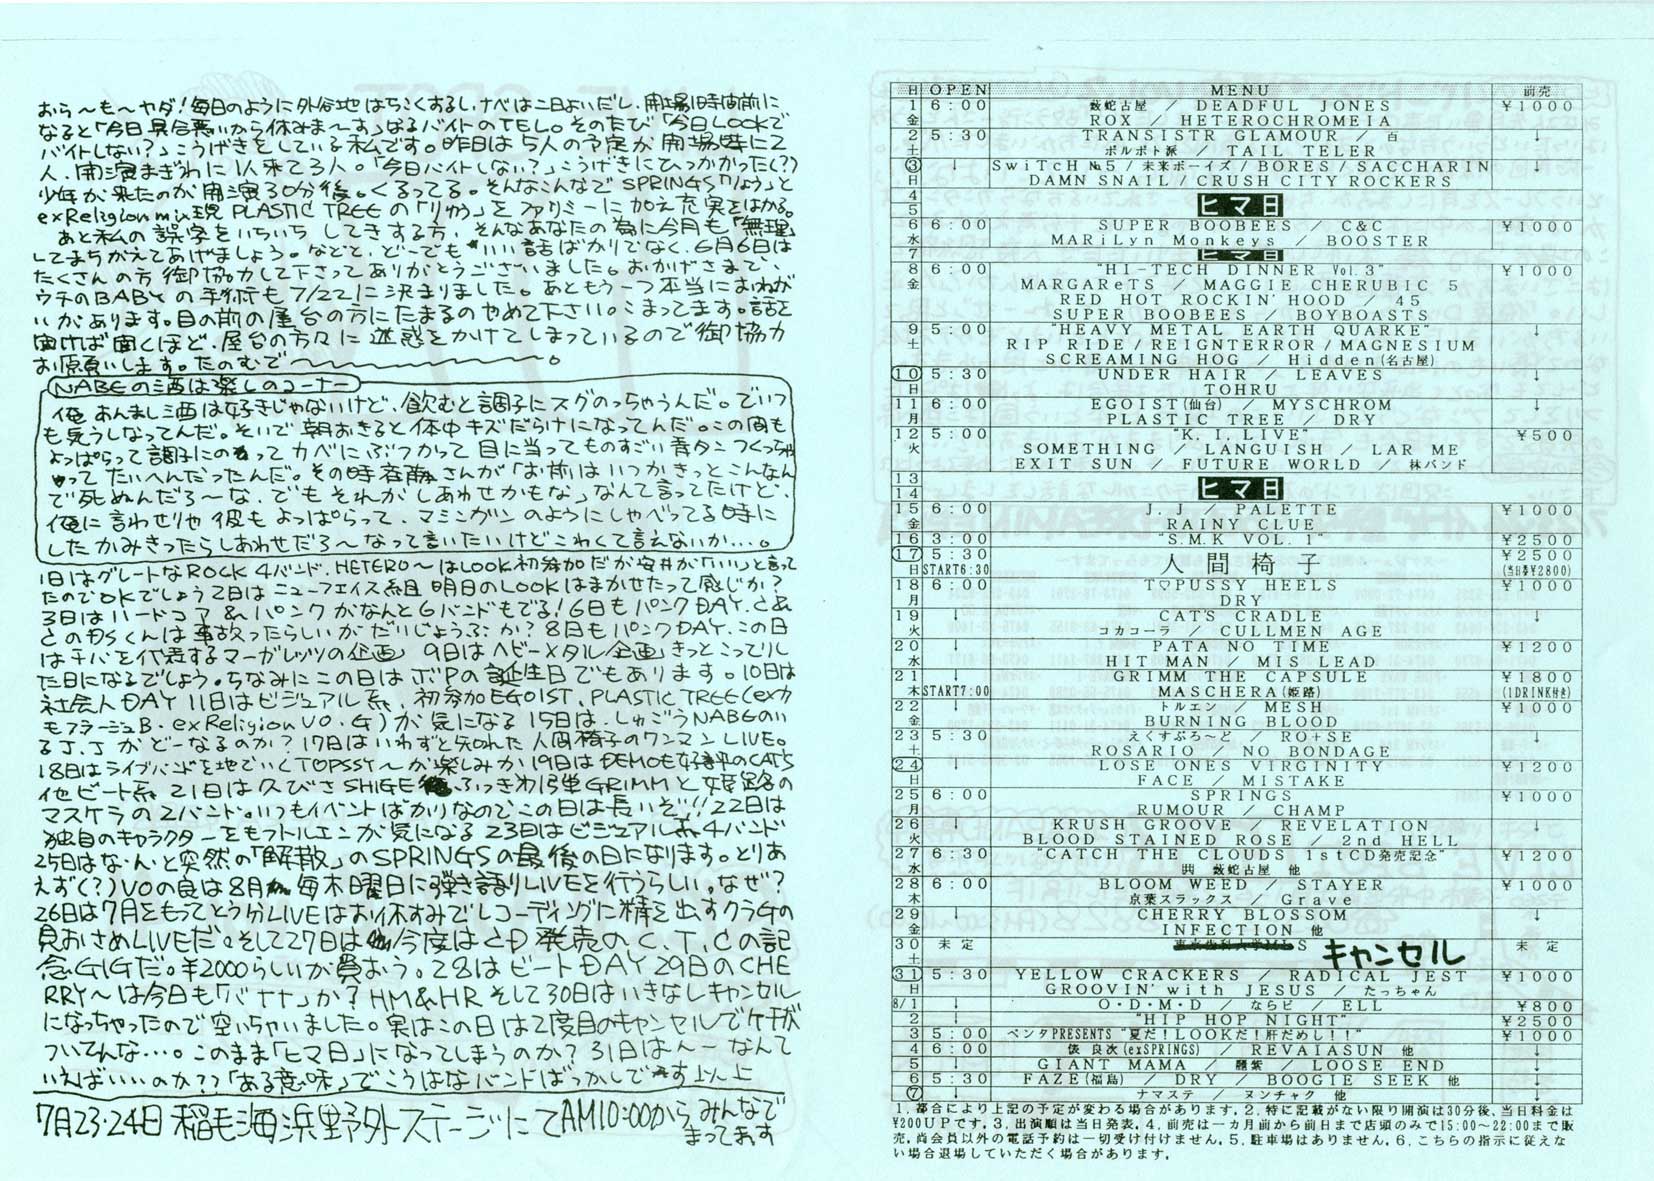 おら〜も〜ヤダ！毎日のように外谷地はちくちくするし、ナベは二日よいだし、開場1時間前に
なると「今日具合悪いから休みま〜す」なるバイトのTEL。そのたび「今日LOOKで
バイトしない？」こうげきをしている私です。昨日は5人の予定が開場時に2
人、開演まぎわに1人来て3人。「今日バイトしない？」こうげきにひっかかった(？)
少年が来たのが開演30分後。くるってる。そんなこんなでSPRINGS「りょう」と
exReligion 現PLASTIC TREEの「りゅう」をファミリーに加え充実をはかる。
あと私の誤字をいちいちしてきする方、そんなあなたの為に今月も「無理」
してまちがえてあげましょう。などと、どーでもいい話ばかりでなく、6月6日は
たくさんの方御協力して下さってありがとうございました。おかげさまで、
ウチのBABYの手術も7/22に決まりました。あともう一つ本当におねが
いがあります。目の前の屋台の方にたまるのやめて下さい。こまってます。話を
聞けば聞くほど、屋台の方々に迷惑をかけてしまっているので御協力
お願いします。たのむで〜。
NABEの酒は楽しのコーナー
俺あんまし酒は好きじゃないけど、飲むと調子にスグのっちゃうんだ。でいつ
も気うしなってんだ。そいで朝おきると体中キズだらけになってんだ。この間も
よっぱらって調子にのってカベにぶつかって目に当ってものすごい青タンつくっちゃ
ってたいへんだったんだ。その時斉藤さんが「お前はいつかきっとこんなん
で死ぬんだろ〜な、でもそれがしあわせかもな」なんて言ってたけど、
俺に言わせりゃ彼もよっぱらって、マシンガンのようにしゃべってる時に
したかみきったらしあわせだろ〜なって言いたいけどこわくて言えないか…。
1日はグレートなROCK 4バンド、HETERO〜はLOOK初参加だが安井が「いい」と言って
たのでOKでしょう 2日はニューフェイス組 明日のLOOKはまかせたって感じか？
3日はハードコア＆パンクがなんと6バンドもでる！6日もパンクDAY、C&
CのあSくんは事故ったらしいがだいじょうぶか？8日もパンクDAY、この日
はチバを代表するマーガレッツの企画」9日はヘビーメタル企画」きっとこってりし
た日になるでしょう。ちなみにこの日はボPの誕生日でもあります。10日は
社会人DAY 11日はビジュアル系、初参加EGOIST、PLASTIC TREE(exカ
モフラージュB・exReligion VO・G)が気になる 15日は、しゅごうNABEのい
るJ.Jがどーなるのか？17日はいわずと知れた人間椅子のワンマンLIVE。
18日はライブバンドを地でいくTOPSSY〜が楽しみか19日はDEMOも好評のCAT'S
他ビート系 21日は久びさSHIGE ふっきわ弾GRIMMと姫路の
マスケラの2バンド。いつもイベントばかりなのでこの日は長いぞ!!22日は
独自のキャラクターをもつトルエンが気になる 23日はビジュアル系4バンド
25日はな・んと突然の「解散」のSPRINGSの最後の日になります。とりあ
えず(？)VOの良は8月毎木曜日に弾き語りLIVEを行うらしい。なぜ？
26日は7月をもってとう分LIVEはお休すみでレコーディングに精を出すクラGの
見おさめLIVEだ。そして27日は今度はCD発売のC.T.Cの記
念GIGだ。¥2000らしいが買おう。28はビートDAY 29日のCHE
RRY〜は今日も「バナナ」か？HM&HR そして30日はいきなしキャンセル
になっちゃったので空いちゃいました。実はこの日は2度目のキャンセルでケチが
ついてんな…。このまま「ヒマ日」になってしまうのか？31日はん〜なんて
いえばいいのか？？「ある意味」でこうはなバンドばっかしです 以上
7月23・24日 稲毛海浜野外ステージにてAM10:00からみんなで
まってます
日 OPEN MENU 前売
1 6:00 薮蛇古屋 / DEADFUL JONES ¥1000
金 ROX / HETEROCHROMEIA
2 5:30 TRANSISTR GLAMOUR / 百 ↓
土 ポルポト派 / TAIL TELER
③ ↓ SwiTcH №5 / 未来ボーイズ / BORES / SACCHARIN ↓
日 DAMN SNAIL / CRUSH CITY ROCKERS
4
5 ヒマ日
6 6:00 SUPER BOOBEES / C&C ¥1000
水 MARiLyn Monkeys / BOOSTER
7 ヒマ日
8 6:00 "HI-TECH DINNER Vol.3" ¥1000
金 MARGAReTS / MAGGIE CHERUBIC 5
RED HOT ROCKIN' HOOD / 45
SUPER BOOBEES / BOYBOASTS
9 5:00 "HEAVY METAL EARTH QUARKE" ↓
土 RIP RIDE / REIGNTERROR / MAGNESIUM
SCREAMING HOG / Hidden(名古屋)
⑩ 5:30 UNDER HAIR / LEAVES ↓
日 TOHRU
11 6:00 EGOIST(仙台) / MYSCHROM ↓
月 PLASTIC TREE / DRY
12 5:00 "K.I.LIVE" ¥500
火 SOMETHING / LANGUISH / LAR ME
EXIT SUN / FUTURE WORLD / 林バンド
13
14 ヒマ日
15 6:00 J.J / PALETTE ¥1000
金 RAINY CLUE
16 3:00 "S.M.K VOL.1" ¥2500
⑰ 5:30 人間椅子 ¥2500
日 START6:30 (当日券¥2800)
18 6:00 T♡PUSSY HEELS ¥1000
月 DRY
19 ↓ CAT'S CRADLE ↓
火 コカコーラ / CULLMEN AGE
20 ↓ PATA NO TIME ¥1200
水 HIT MAN / MIS LEAD
21 ↓ GRIMM THE CAPSULE ¥1800
木 START7:00 MASCHERA(姫路) (1DRINK付き)
22 ↓ トルエン / MESH ¥1000
金 BURNING BLOOD
23 5:30 えくすぷろ〜ど / RO+SE ↓
土 ROSARIO / NO BONDAGE
㉔ ↓ LOSE ONES VIRGINITY ¥1200
日 FACE / MISTAKE
25 6:00 SPRINGS ¥1000
月 RUMOUR / CHAMP
26 ↓ KRUSH GROOVE / REVELATION ↓
火 BLOOD STAINED ROSE / 2nd HELL
27 6:30 "CATCH THE CLOUDS 1stCD発売記念" ¥1200
水 薮蛇古屋 他
28 6:00 BLOOM WEED / STAYER ¥1000
木 京葉スラックス / Grave
29 ↓ CHERRY BLOSSOM ↓
金 INFECTION 他
30 未定 キャンセル 未定
土
㉛ 5:30 YELLOW CRACKERS / RADICAL JEST ¥1000
日 GROOVIN' with JESUS / たっちゃん
8/1 ↓ O・D・M・D / ならピ / ELL ¥800
2 ↓ "HIP HOP NIGHT" ¥2500
3 5:00 ペンタPRESENTS "夏だ！LOOKだ！肝だめし！！" ¥1000
4 6:00 俵 良次(exSPRINGS) / REVAIASUN 他 ↓
5 ↓ GIANT MAMA / 麗紫 / LOOSE END ↓
6 5:30 FAZE(福島) / DRY / BOOGIE SEEK 他 ↓
⑦ ↓ ナマステ / ヌンチャク 他 ↓
1，都合により上記の予定が変わる場合があります，2，特に記載がない限り開演は30分後、当日料金は
¥200UPです，3，出演順は当日発表，4，前売は一カ月前から前日まで店頭のみで15:00〜22:00まで販
売，尚会員以外の電話予約は一切受け付けません，5，駐車場はありません，6，こちらの指示に従えな
い場合退場していただく場合があります，